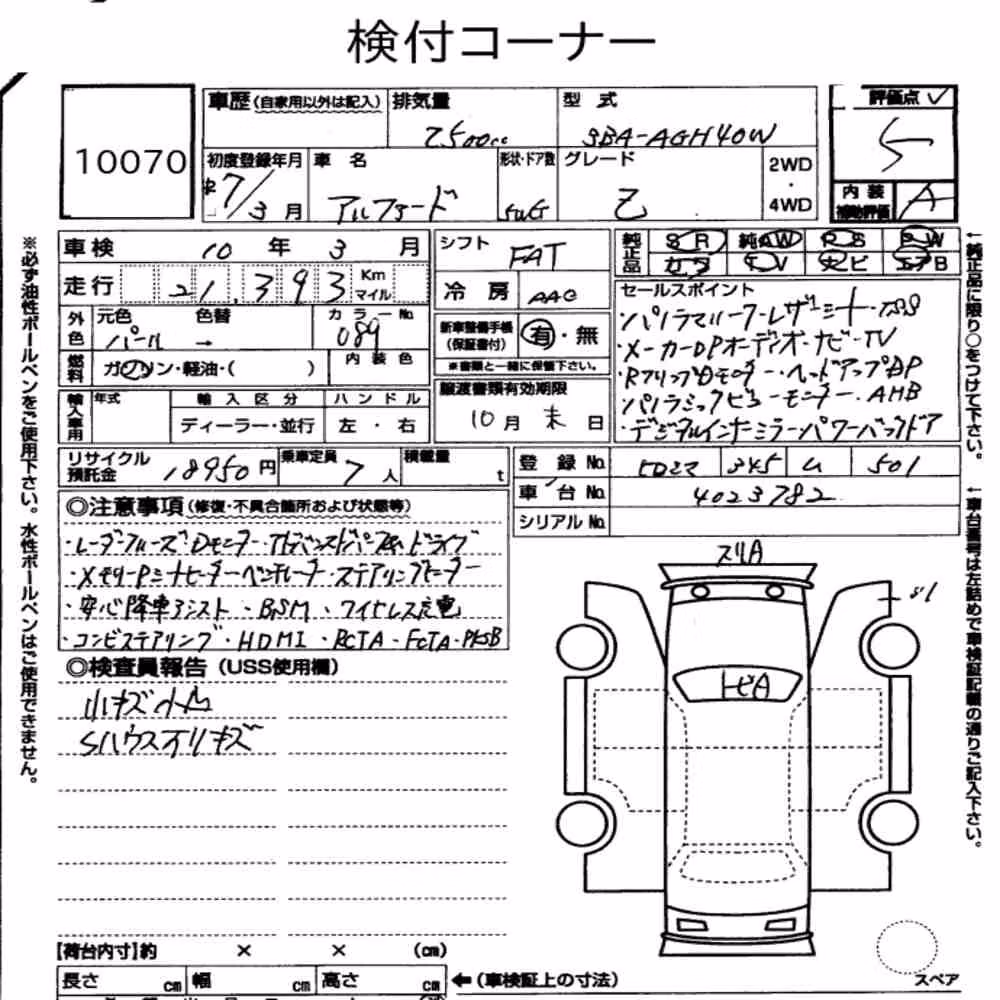 検付コーナー
10070
車歴(自家用以外は記入) 排気量 2500cc 型式 3BA-AGH40W
評価点 5
初度登録年月 7/3月 車名 アルファード 形状・ドア数 5WG グレード Z 2WD・4WD
内装補助評価 A
車検 10年 3月
走行 21,393 Km マイル
シフト FAT
冷房 AAC
純正品 SR 純AW PS PW カワ TV ナビ エアB
外色 元色 パール 色替 → カラーNo. 089
燃料 ガソリン・軽油・( ) 内装色
新車整備手帳(保証書付) 有・無
※書類と一緒に保管下さい。
譲渡書類有効期限 10月末日
セールスポイント
・パノラマルーフ・レザーシート・TSS
・メーカーDPオーディオ・ナビ・TV
・Rフリップダウンモニター・ヘッドアップDP
・パノラミックビューモニター・AHB
・デジタルインナーミラー・パワーバックドア
輸入車用 年式 輸入区分 ディーラー・並行 ハンドル 左・右
リサイクル預託金 18950円 乗車定員 7人 積載量 t
登録No. 345 501
車台No. 4023782
シリアルNo.
◎注意事項(修復・不具合箇所および状態等)
・レーダークルーズ・Dモニター・アドバンストパーク・ドライブ
・メモリーPシート・ヒーター・ベンチレーター・ステアリングヒーター
・安心降車アシスト・BSM・ワイヤレス充電
・コンビステアリング・HDMI・RCTA・FCTA・PKSB
◎検査員報告(USS使用欄)
小キズ小凹
Sハウススリキズ
スリA
トビA
【荷台内寸】約 × × (cm)
長さ cm 幅 cm 高さ cm
←(車検証上の寸法)
スペア
※必ず油性ボールペンをご使用下さい。水性ボールペンはご使用できません。
←純正品に限り○をつけて下さい。
←車台番号は左詰めで車検証記載の通りご記入下さい。